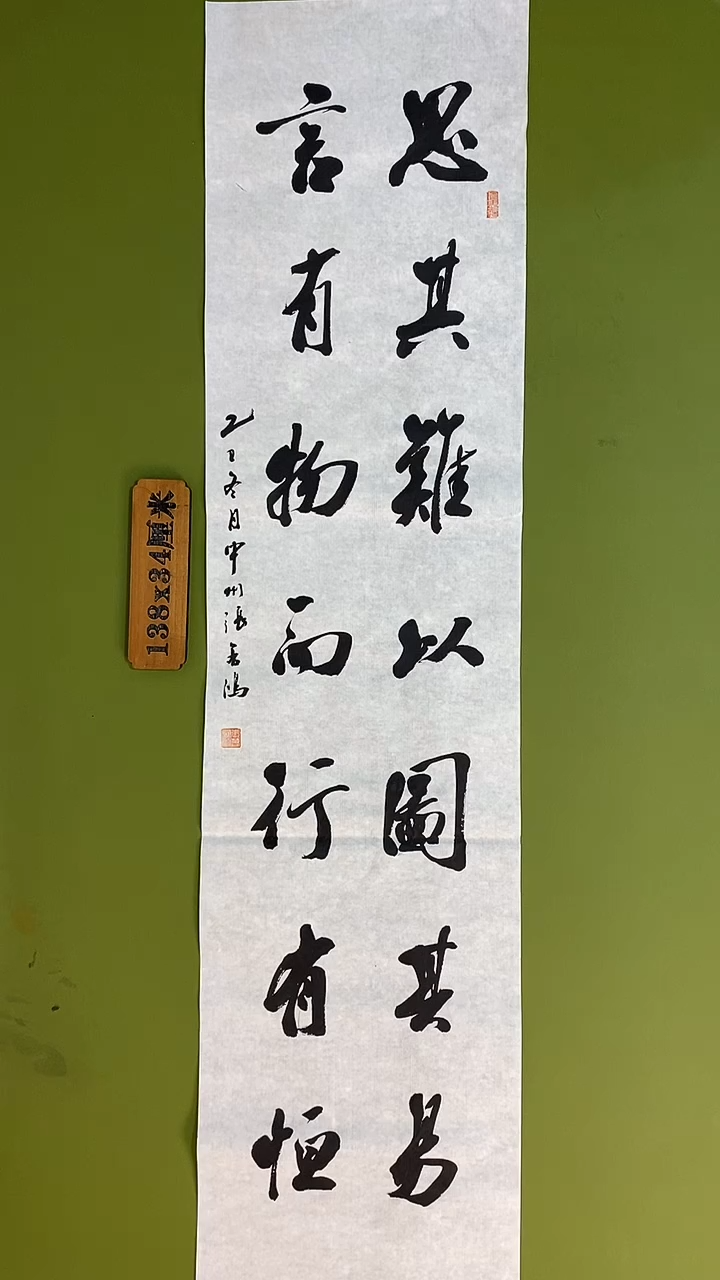 思其難以圖其易
言有物而行有恒
乙巳冬月中州張善鴻
138x34厘米